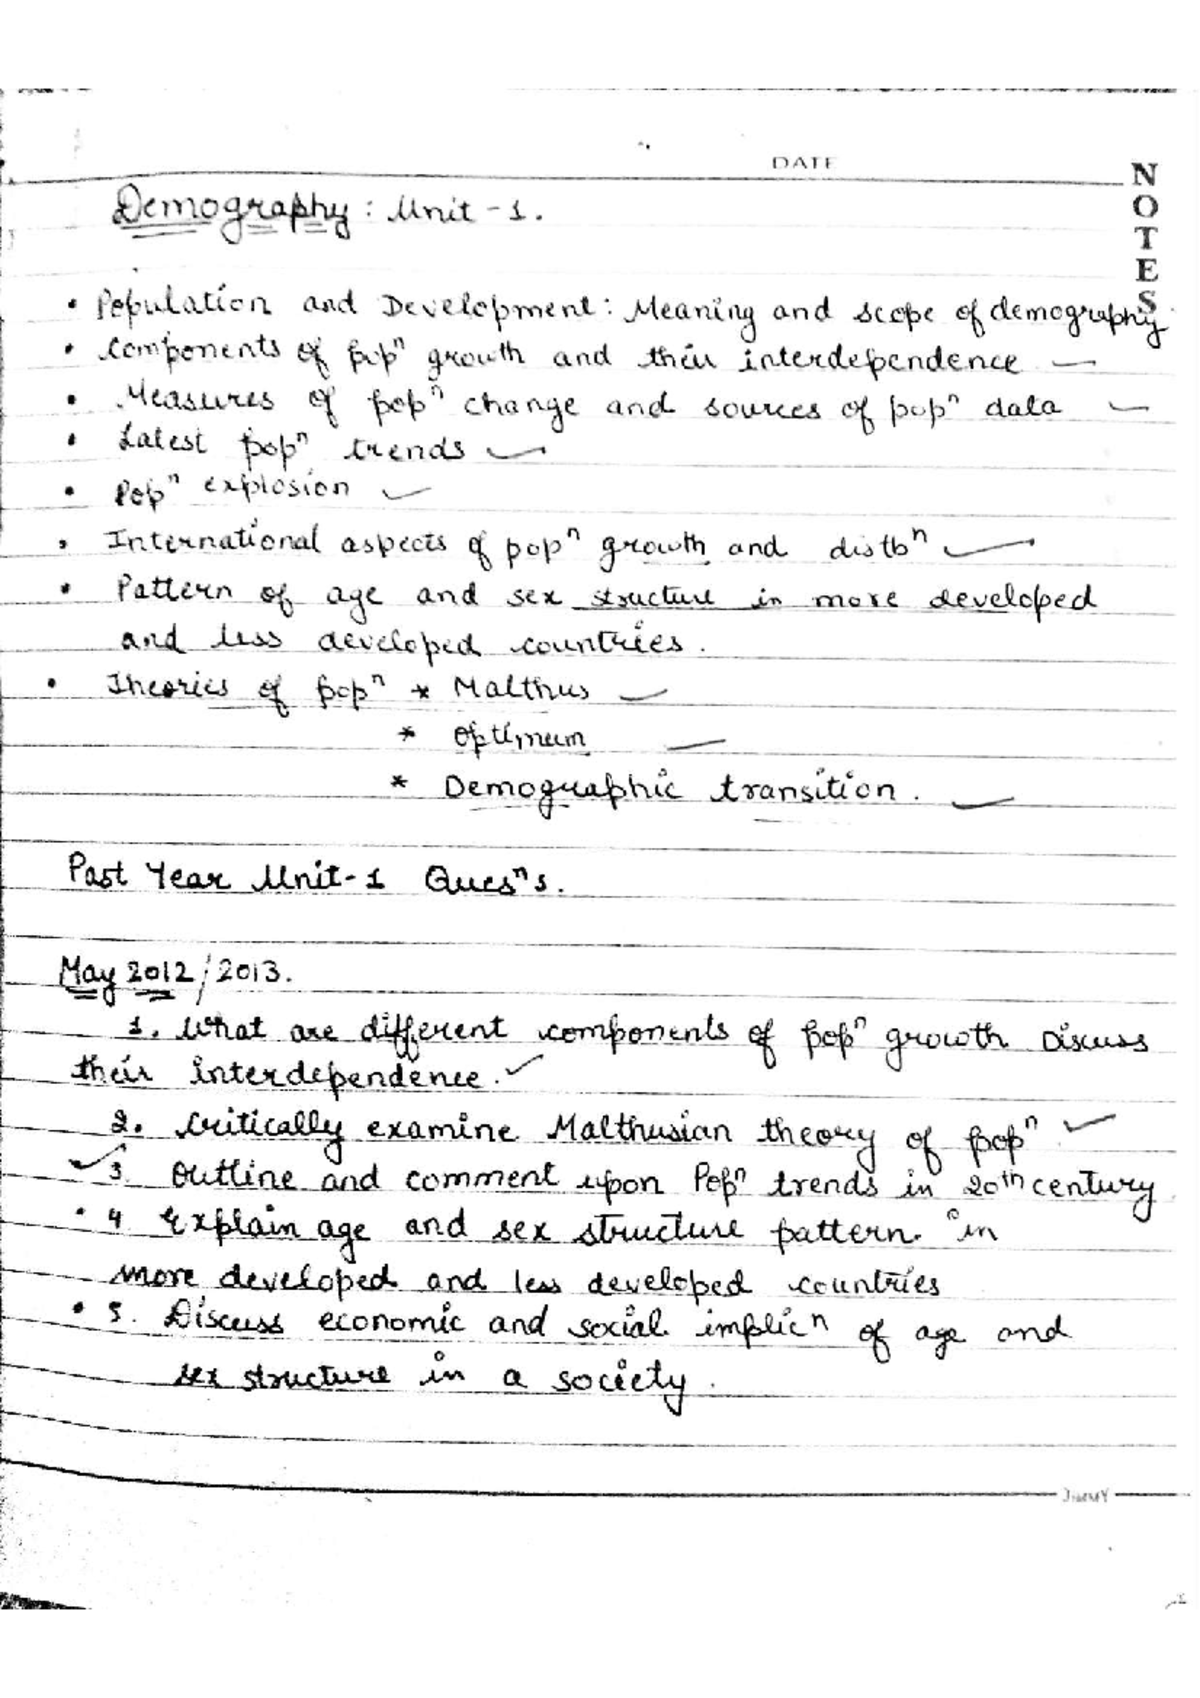 DATE
NOTES
Demography : Unit - 1.
• Population and Development : Meaning and scope of demography
• Components of popⁿ growth and their interdependence
• Measures of popⁿ change and sources of popⁿ data
• Latest popⁿ trends
• Popⁿ explosion
• International aspects of popⁿ growth and distbⁿ
• Pattern of age and sex structure in more developed
and less developed countries.
• Theories of popⁿ * Malthus
* Optimum
* Demographic transition.
Past Year Unit-1 Quesⁿs.
May 2012/2013.
1. What are different components of popⁿ growth Discuss
their interdependence.
2. Critically examine Malthusian theory of popⁿ
3. Outline and comment upon Popⁿ trends in 20th century
• 4 Explain age and sex structure pattern in
more developed and less developed countries
• 5. Discuss economic and social implicⁿ of age and
sex structure in a society.
JIMMY